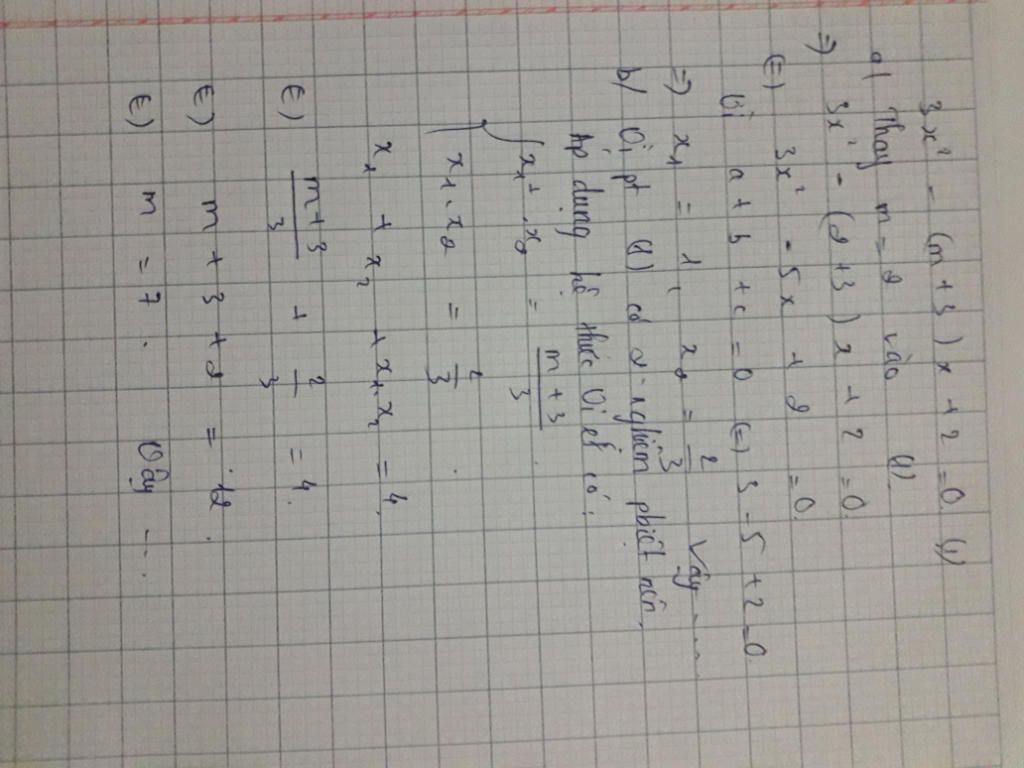 3x² - (m+3)x + 2 = 0 (1)
a) Thay m = 2 vào (1).
=> 3x² - (2+3)x + 2 = 0.
(=) 3x² - 5x + 2 = 0.
Vì a + b + c = 0 (=) 3 - 5 + 2 = 0
=> x₁ = 1, x₂ = 2/3 Vậy ...
b) Vì pt (1) có 2 nghiệm phbiệt nên.
Áp dụng hệ thức Vi ét có:
{ x₁ + x₂ = (m+3)/3
x₁ . x₂ = 2/3 .
x₁ + x₂ + x₁x₂ = 4.
(=) (m+3)/3 + 2/3 = 4.
(=) m + 3 + 2 = 12.
(=) m = 7. Vậy ...